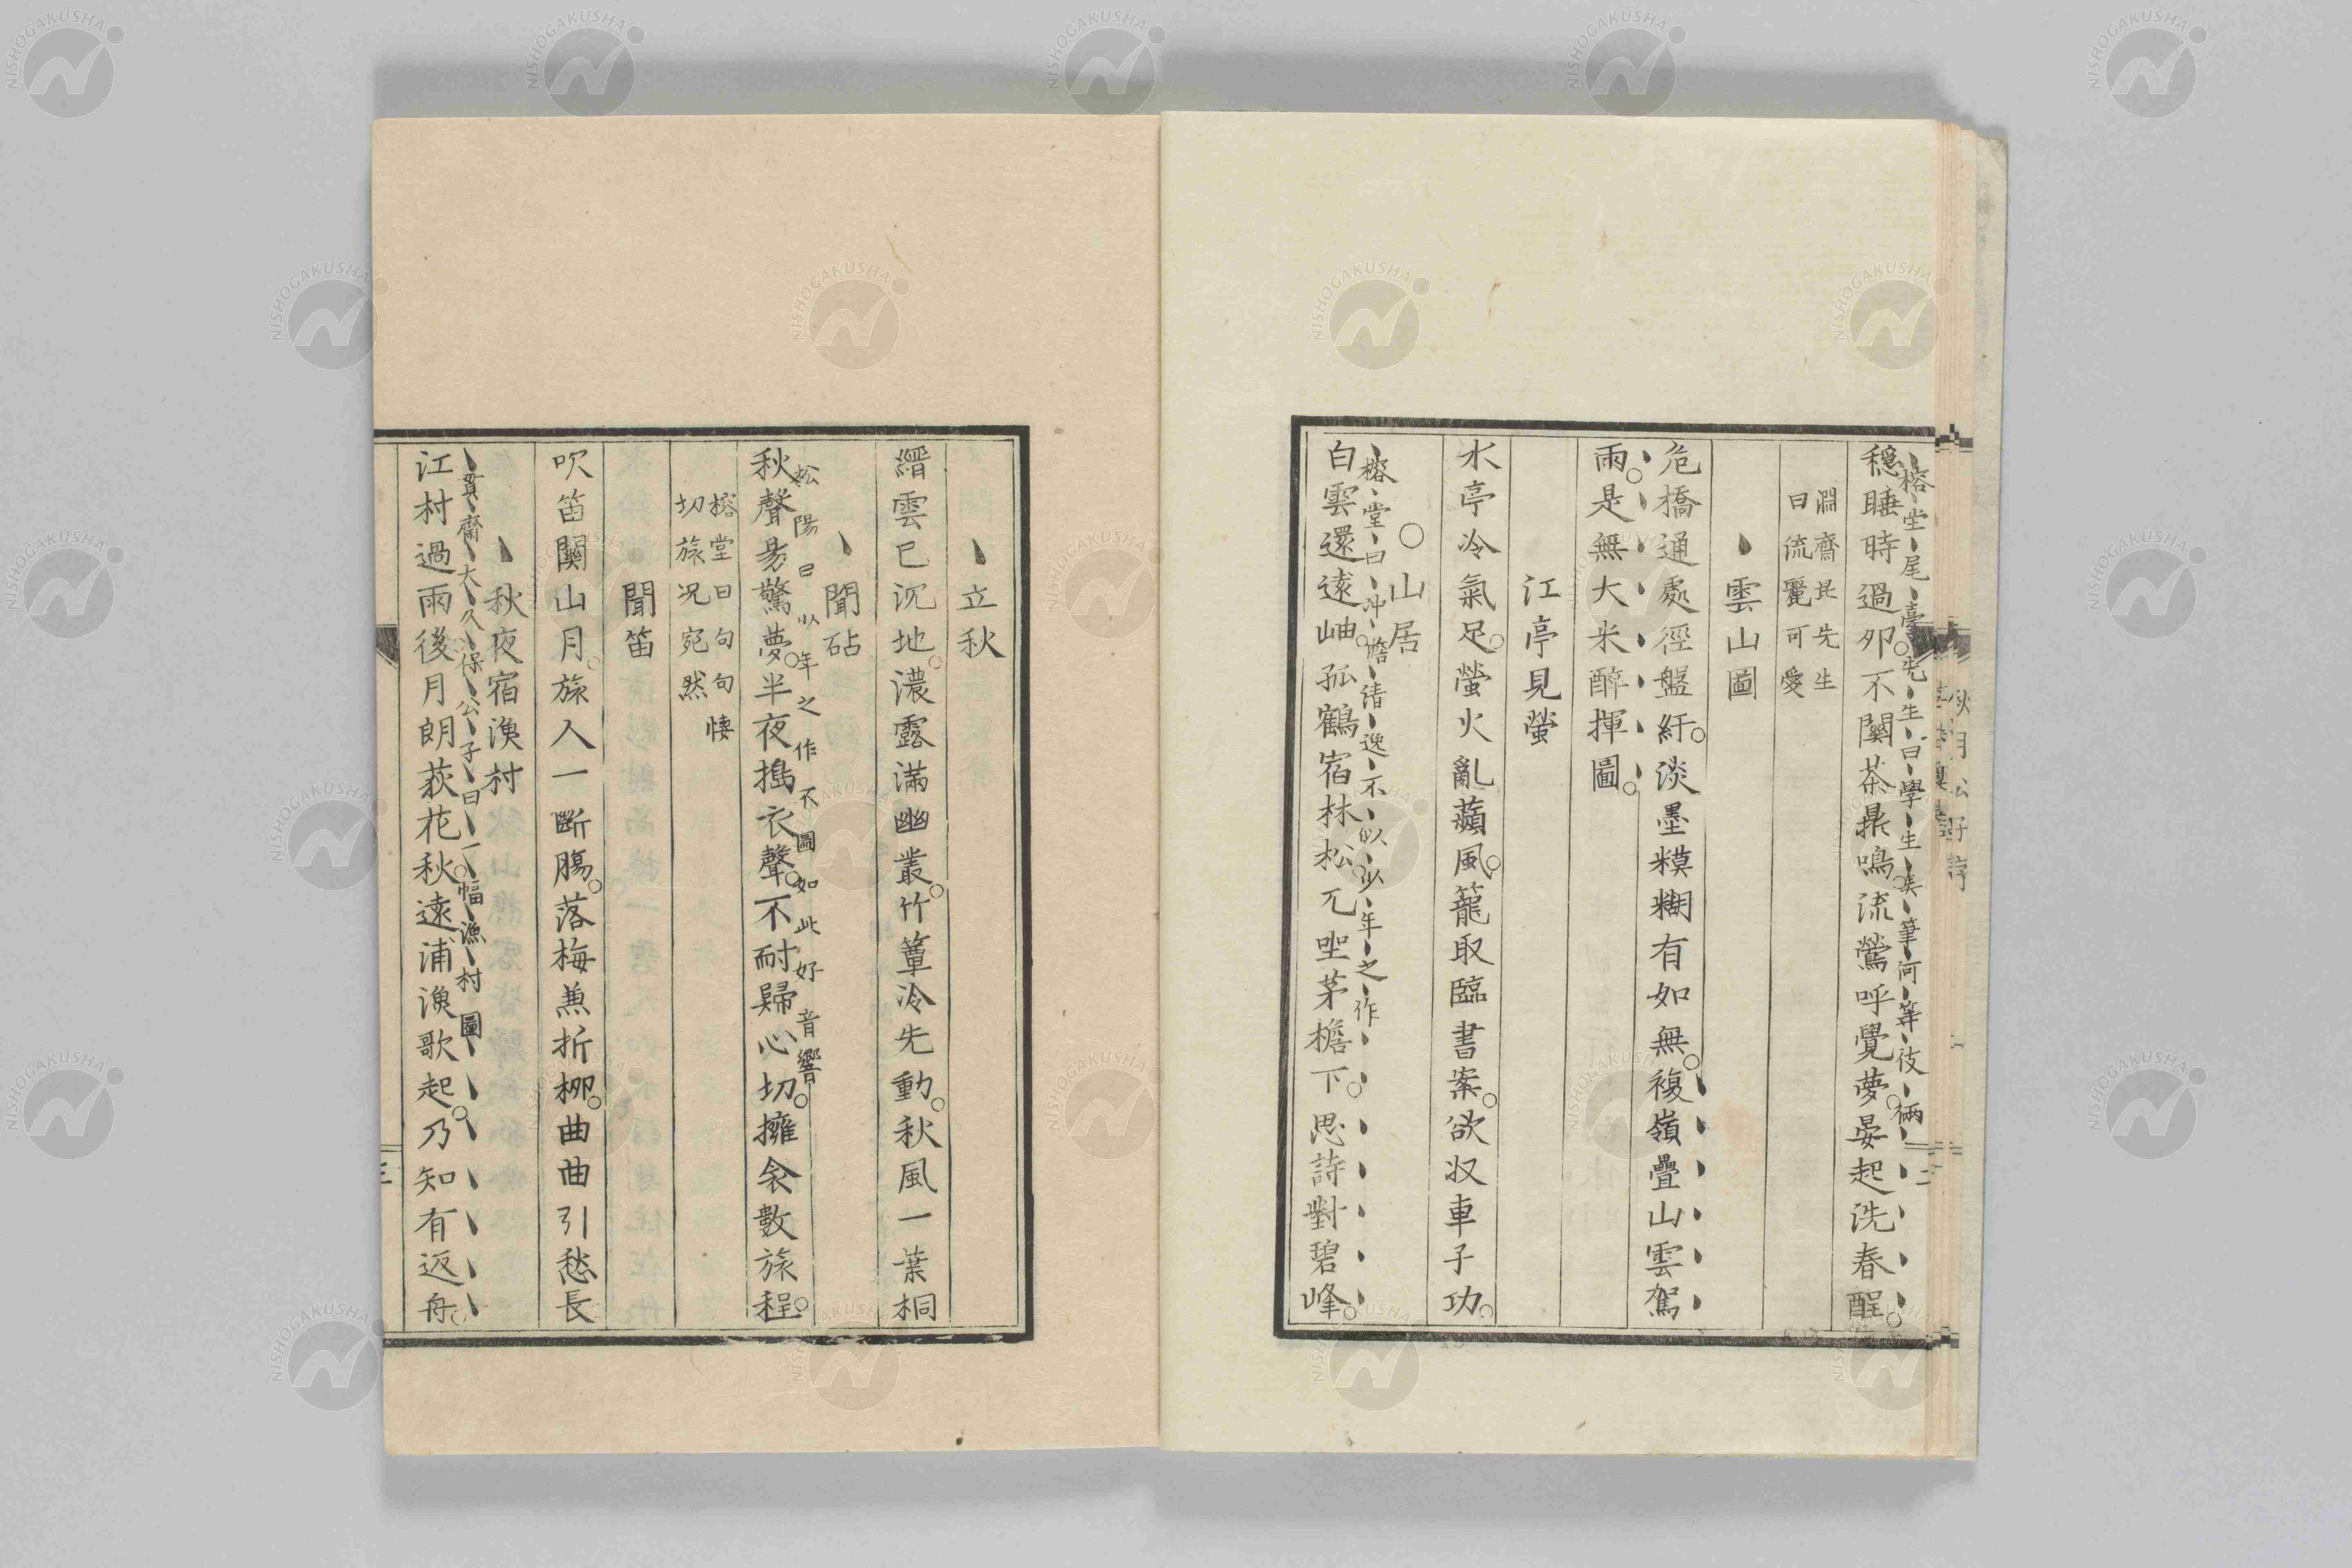 榕堂尾臺先生曰學生奚筆何等彼倆
穩睡時過夘不關茶鼎鳴流鶯呼覺夢晏起洗春酲
淵齋昆先生
曰流麗可愛
雲山圖
危橋通處徑盤紆淡墨糢糊有如無複嶺疊山雲駕
雨是無大米醉揮圖
江亭見螢
水亭冷氣足螢火亂蘋風籠取臨書案欲収車子功
山居
榕堂曰冲憺清逸不似少年之作
白雲還遠岫孤鶴宿林松兀坐茅檐下思詩對碧峰
立秋
縉雲已沉地濃露滿幽叢竹簟冷先動秋風一葉桐
聞砧
松陽曰少年之作不圖如此好音響
秋聲易驚夢半夜搗衣聲不耐歸心切擁衾數旅程
榕堂曰句句悽
切旅况宛然
聞笛
吹笛關山月旅人一斷膓落梅兼折柳曲曲引愁長
秋夜宿漁村
貫齋大久保公子曰一幅漁村圖
江村過雨後月朗荻花秋遠浦漁歌起乃知有返舟
三
NISHOGAKUSHA